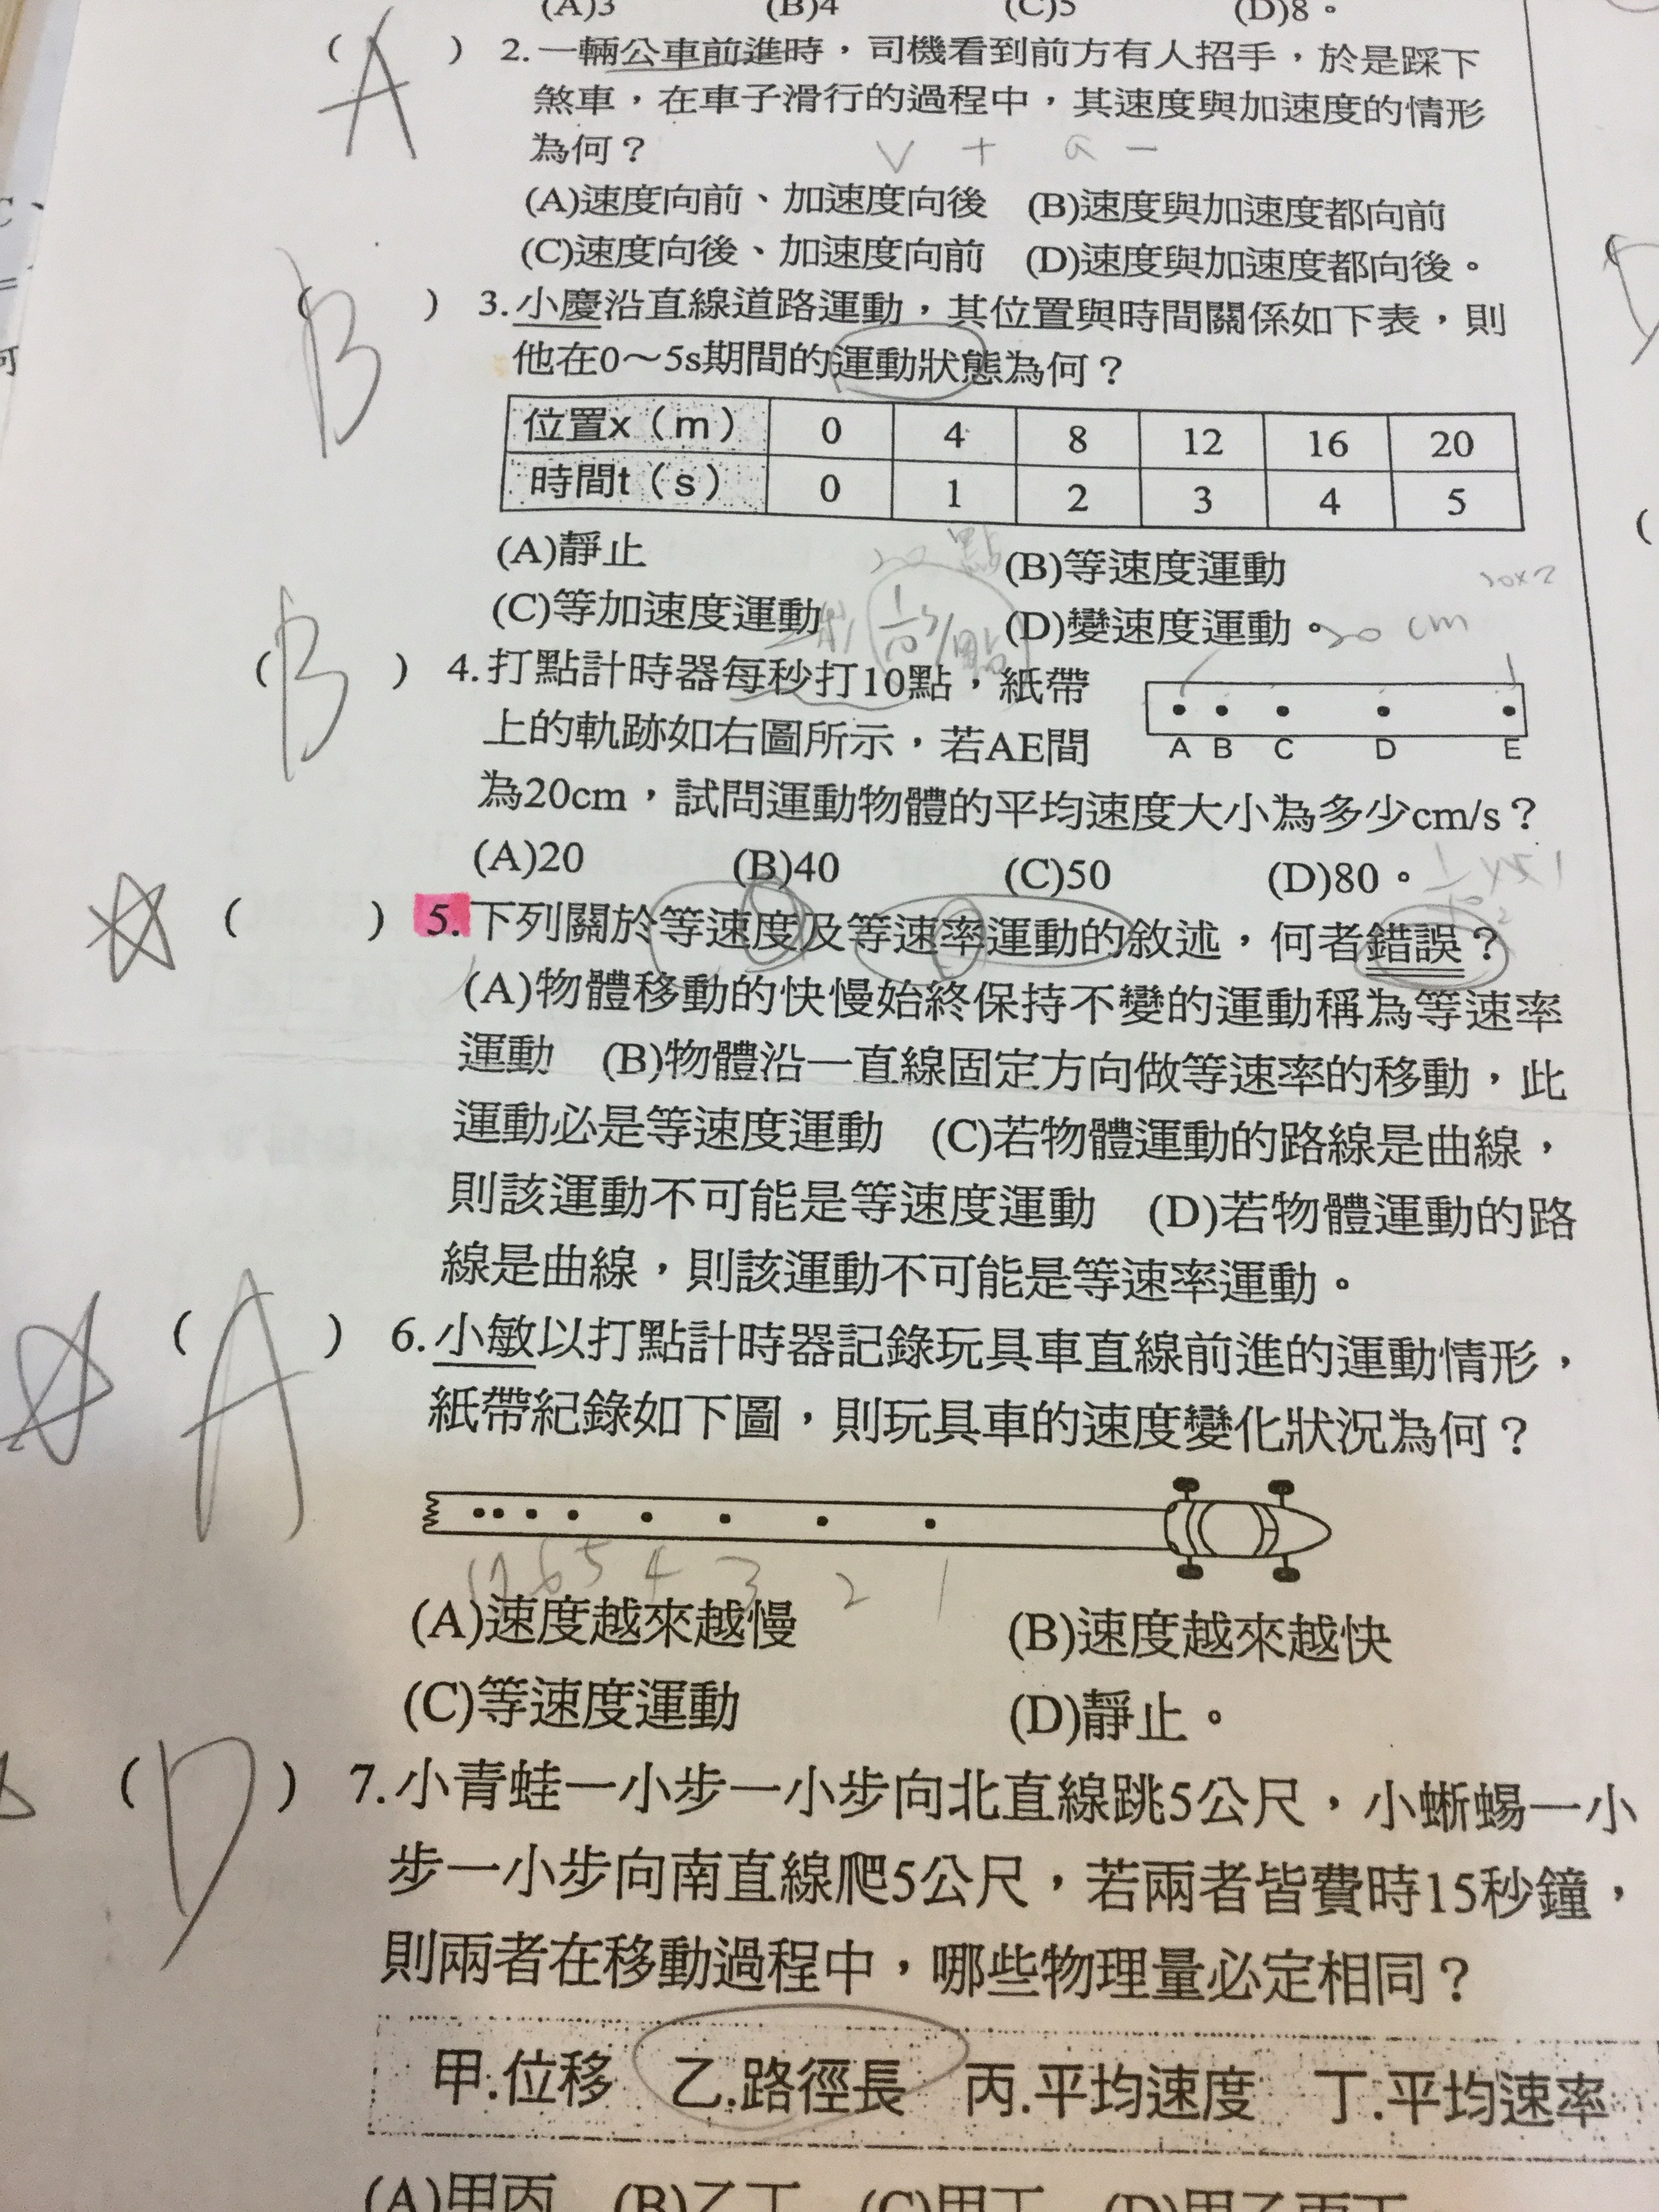 (A)3 (B)4 (C)5 (D)8。
( A ) 2.一輛公車前進時，司機看到前方有人招手，於是踩下
煞車，在車子滑行的過程中，其速度與加速度的情形
為何？ V + a -
(A)速度向前、加速度向後 (B)速度與加速度都向前
(C)速度向後、加速度向前 (D)速度與加速度都向後。
( B ) 3.小慶沿直線道路運動，其位置與時間關係如下表，則
他在0～5s期間的運動狀態為何？
位置x（m） 0 4 8 12 16 20
時間t（s） 0 1 2 3 4 5
(A)靜止 (B)等速度運動
(C)等加速度運動 (D)變速度運動。
20 cm
( B ) 4.打點計時器每秒打10點，紙帶
上的軌跡如右圖所示，若AE間
為20cm，試問運動物體的平均速度大小為多少cm/s？
A B C D E
(A)20 (B)40 (C)50 (D)80。
( ) 5.下列關於等速度及等速率運動的敘述，何者錯誤？
(A)物體移動的快慢始終保持不變的運動稱為等速率
運動 (B)物體沿一直線固定方向做等速率的移動，此
運動必是等速度運動 (C)若物體運動的路線是曲線，
則該運動不可能是等速度運動 (D)若物體運動的路
線是曲線，則該運動不可能是等速率運動。
( A ) 6.小敏以打點計時器記錄玩具車直線前進的運動情形，
紙帶紀錄如下圖，則玩具車的速度變化狀況為何？
6 5 4 3 2 1
(A)速度越來越慢 (B)速度越來越快
(C)等速度運動 (D)靜止。
( D ) 7.小青蛙一小步一小步向北直線跳5公尺，小蜥蜴一小
步一小步向南直線爬5公尺，若兩者皆費時15秒鐘，
則兩者在移動過程中，哪些物理量必定相同？
甲.位移 乙.路徑長 丙.平均速度 丁.平均速率
(A)甲丙 (B)乙丁 (C)甲丁 (D)甲乙丙丁